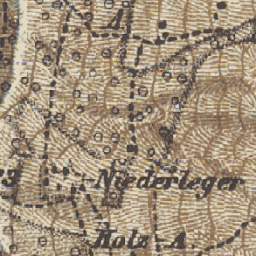 A.
33
Niederleger
Holz-A.